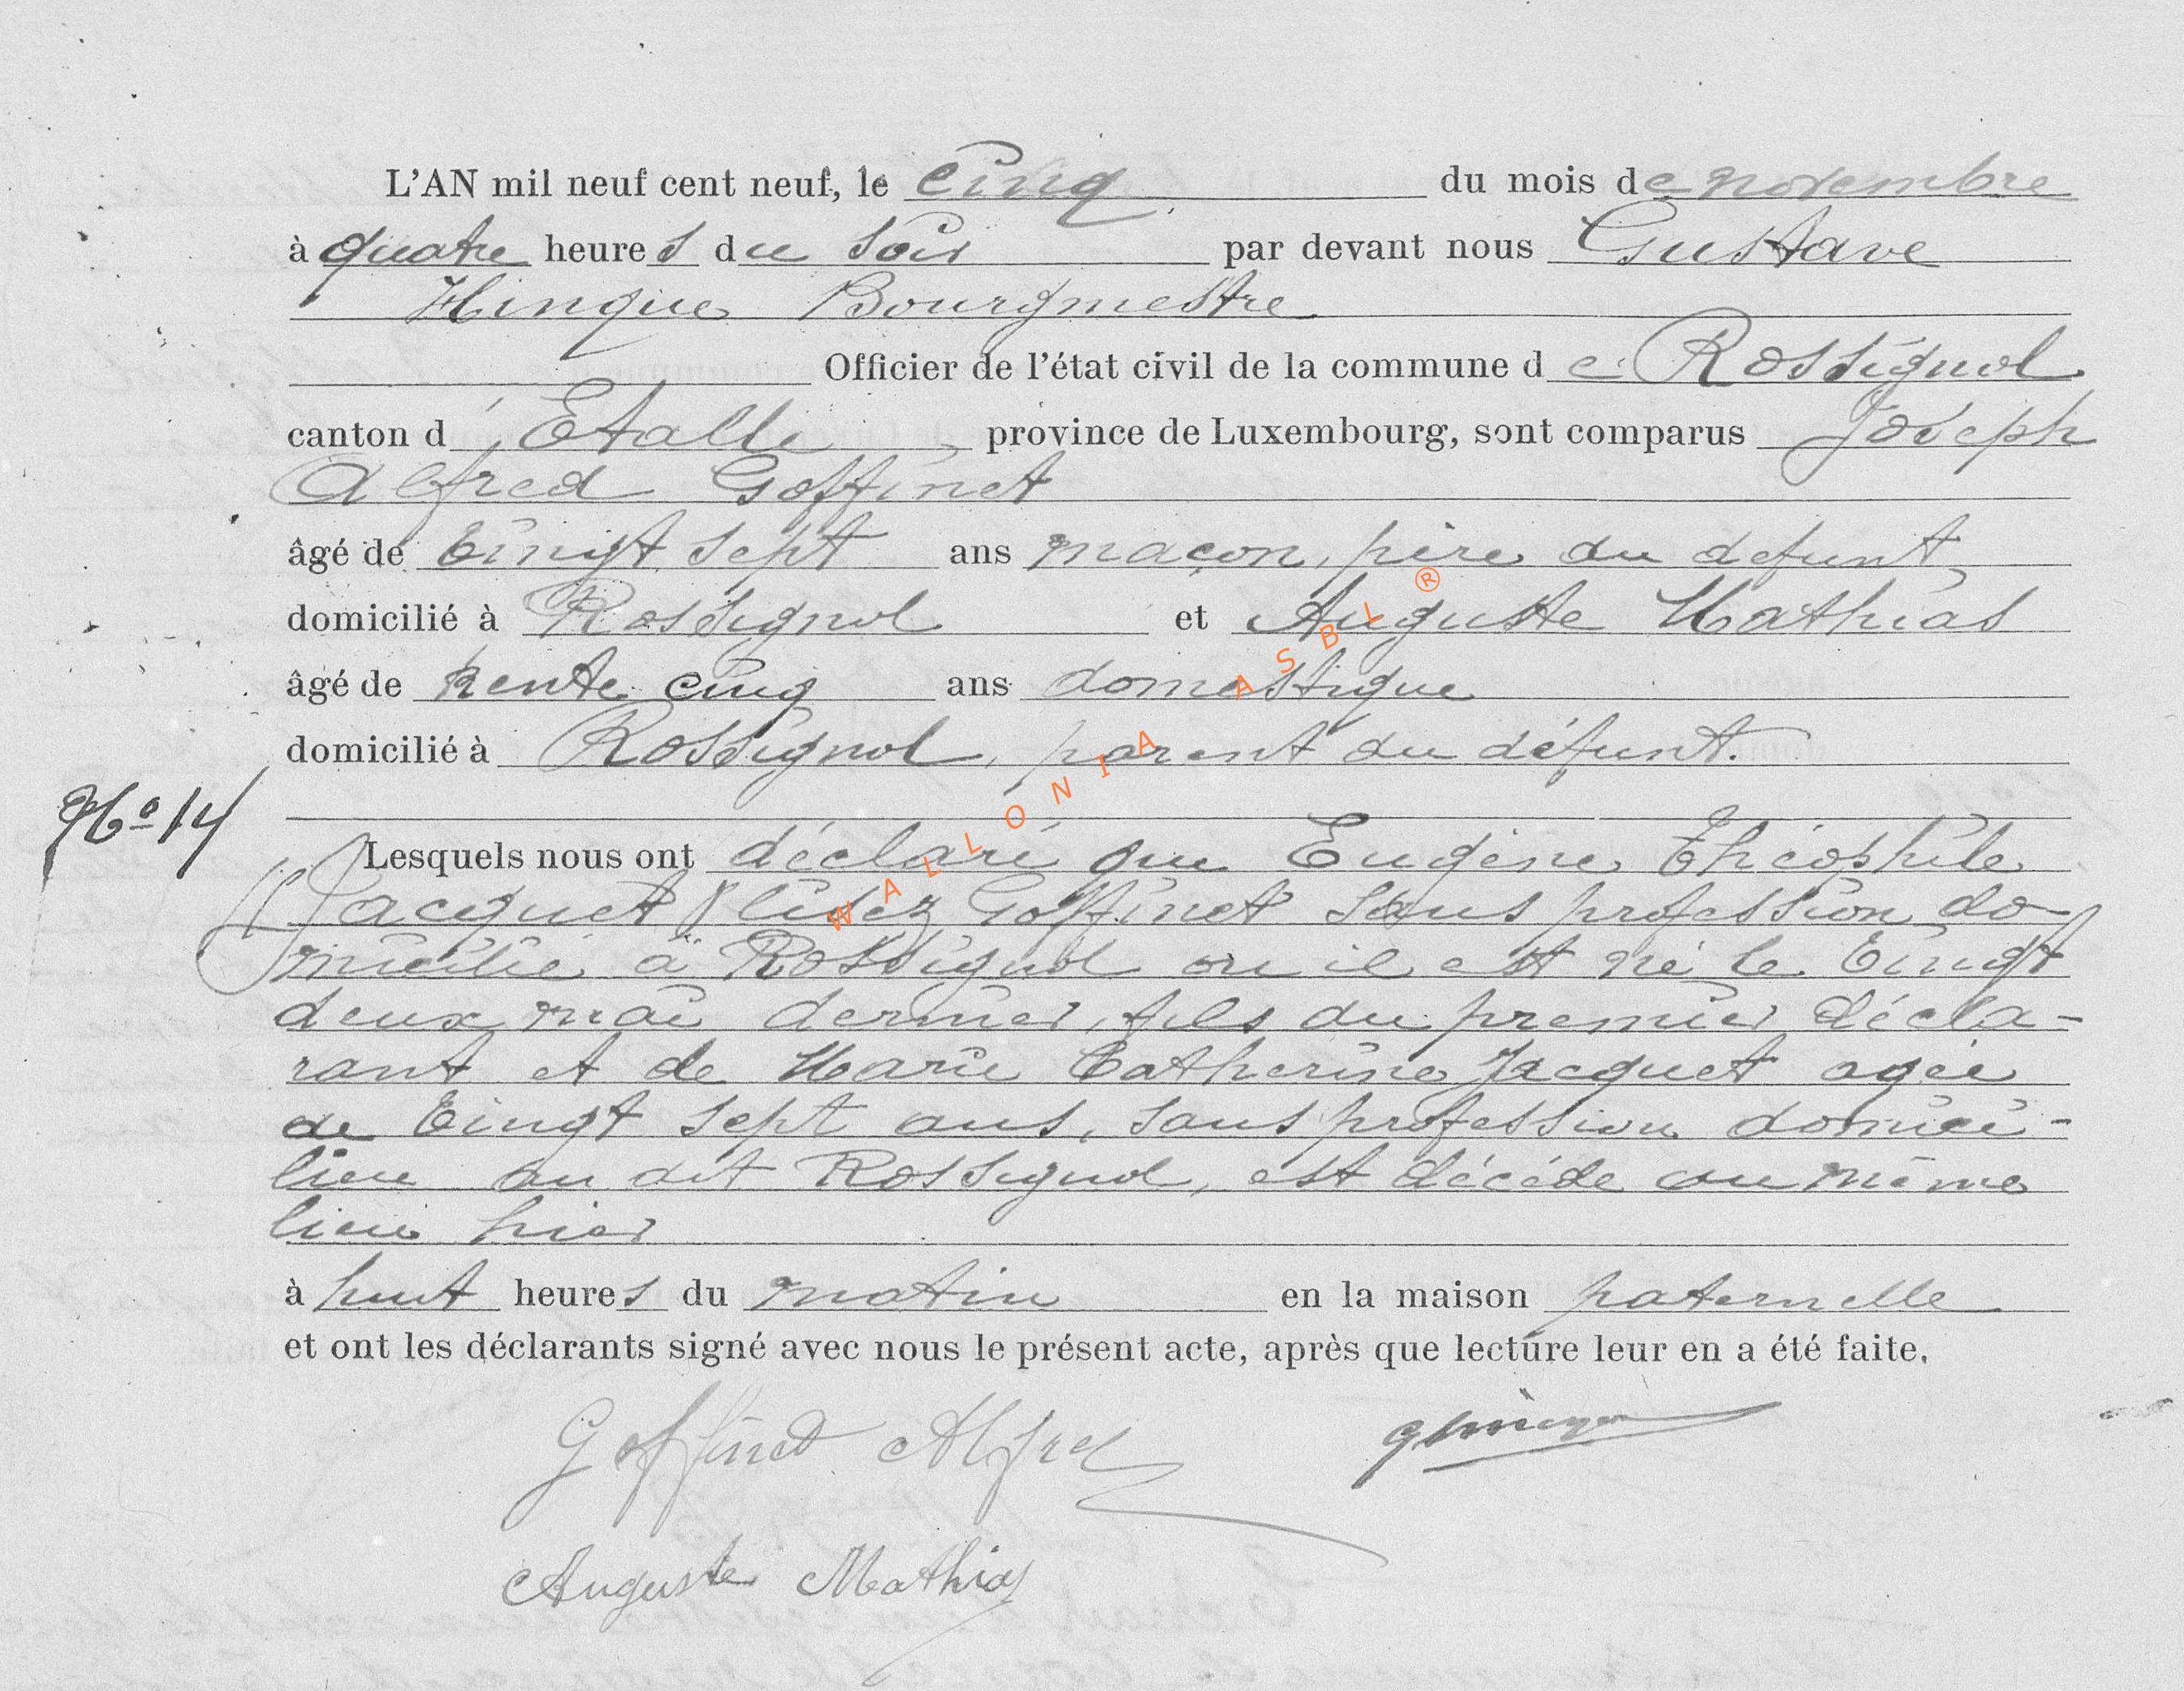 L'AN mil neuf cent neuf, le cinq du mois de novembre
à quatre heures du soir par devant nous Gustave
Hinque Bourgmestre
Officier de l'état civil de la commune de Rossignol
canton d'Etalle, province de Luxembourg, sont comparus Joseph
Alfred Goffinet
âgé de vingt sept ans maçon, père du defunt,
domicilié à Rossignol et Auguste Mathias
âgé de trente cinq ans domestique
domicilié à Rossignol, parent du défunt.
No 14
Lesquels nous ont déclaré que Eugène Théophile
Jacquet lisez Goffinet sans profession do
micilié à Rossignol ou il est né le vingt
deux mai dernier, fils du premier décla-
rant et de Marie Catherine Jacquet agée
de vingt sept ans, sans profession domici-
liée au dit Rossignol, est décédé au même
lieu hier
à huit heures du matin en la maison paternelle
et ont les déclarants signé avec nous le présent acte, après que lecture leur en a été faite.
Goffinet Alfred
Auguste Mathias
WALLONIA ASBL ®